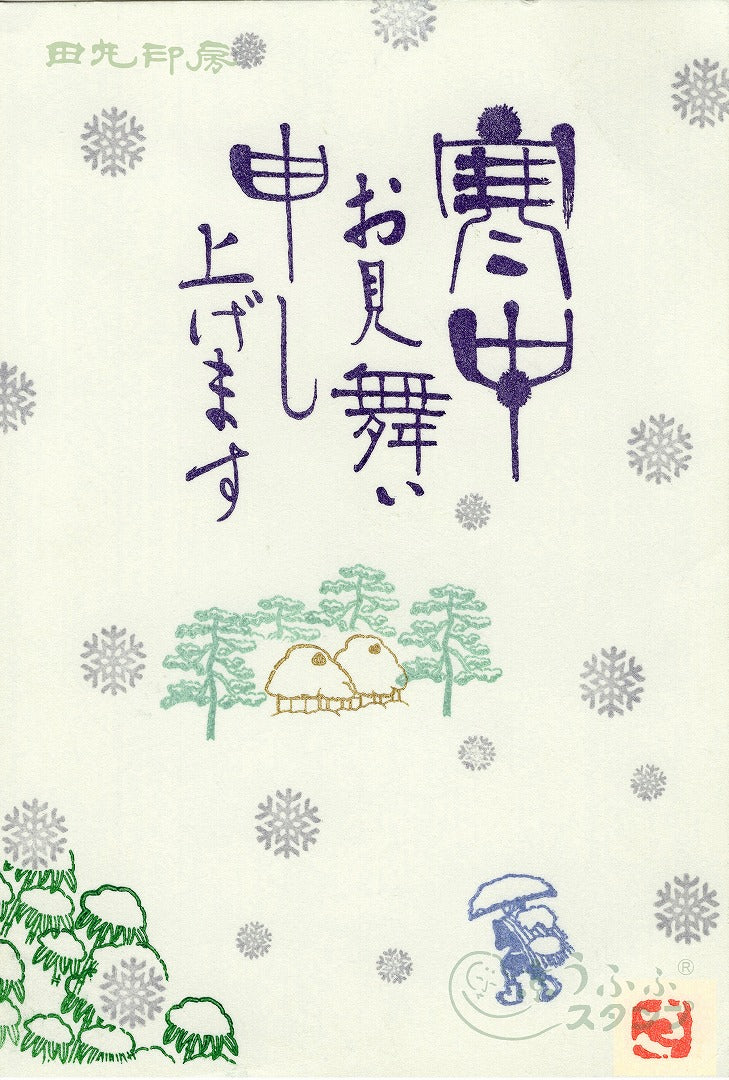 田丸印房
寒中
お見舞い
申し
上げます
うふふ®
スタンプ